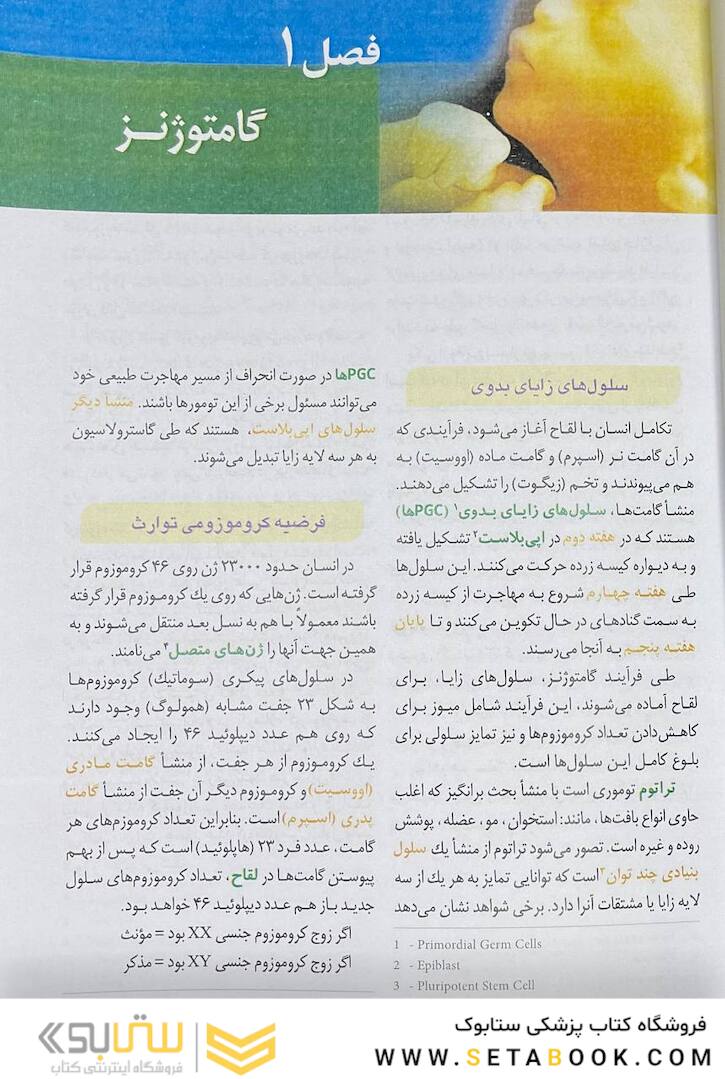 فصل ۱
گامتوژنـز
سلول‌های زایای بدوی
تکامل انسان با لقاح آغاز می‌شود، فرآیندی که
در آن گامت نر (اسپرم) و گامت ماده (اووسیت) به
هم می‌پیوندند و تخم (زیگوت) را تشکیل می‌دهند.
منشأ گامت‌ها، سلول‌های زایای بدوی۱ (PGCها)
هستند که در هفته دوم در اپی‌بلاست۲ تشکیل یافته
و به دیواره کیسه زرده حرکت می‌کنند. این سلول‌ها
طی هفته چهارم شروع به مهاجرت از کیسه زرده
به سمت گنادهای در حال تکوین می‌کنند و تا پایان
هفته پنجم به آنجا می‌رسند.
طی فرآیند گامتوژنز، سلول‌های زایا، برای
لقاح آماده می‌شوند، این فرآیند شامل میوز برای
کاهش‌دادن تعداد کروموزوم‌ها و نیز تمایز سلولی برای
بلوغ کامل این سلول‌ها است.
تراتوم توموری است با منشأ بحث برانگیز که اغلب
حاوی انواع بافت‌ها، مانند: استخوان، مو، عضله، پوشش
روده و غیره است. تصور می‌شود تراتوم از منشأ یك سلول
بنیادی چند توان۳ است که توانایی تمایز به هر یك از سه
لایه زایا یا مشتقات آنرا دارد. برخی شواهد نشان می‌دهد
1 - Primordial Germ Cells
2 - Epiblast
3 - Pluripotent Stem Cell
PGCها در صورت انحراف از مسیر مهاجرت طبیعی خود
می‌توانند مسئول برخی از این تومورها باشند. منشأ دیگر
سلول‌های اپی‌بلاست، هستند که طی گاسترولاسیون
به هر سه لایه زایا تبدیل می‌شوند.
فرضیه کروموزومی توارث
در انسان حدود ۲۳۰۰۰ ژن روی ۴۶ کروموزوم قرار
گرفته است. ژن‌هایی که روی یك کروموزوم قرار گرفته
باشند معمولاً با هم به نسل بعد منتقل می‌شوند و به
همین جهت آنها را ژن‌های متصل۴ می‌نامند.
در سلول‌های پیکری (سوماتیك) کروموزوم‌ها
به شکل ۲۳ جفت مشابه (همولوگ) وجود دارند
که روی هم عدد دیپلوئید ۴۶ را ایجاد می‌کنند.
یك کروموزوم از هر جفت، از منشأ گامت مادری
(اووسیت) و کروموزوم دیگر آن جفت از منشأ گامت
پدری (اسپرم) است. بنابراین تعداد کروموزم‌های هر
گامت، عدد فرد ۲۳ (هاپلوئید) است که پس از بهم
پیوستن گامت‌ها در لقاح، تعداد کروموزم‌های سلول
جدید باز هم عدد دیپلوئید ۴۶ خواهد بود.
اگر زوج کروموزوم جنسی XX بود = مؤنث
اگر زوج کروموزوم جنسی XY بود = مذکر
فروشگاه کتاب پزشکی ستابوک
WWW.SETABOOK.COM
ستابوک
فروشگاه اینترنتی کتاب